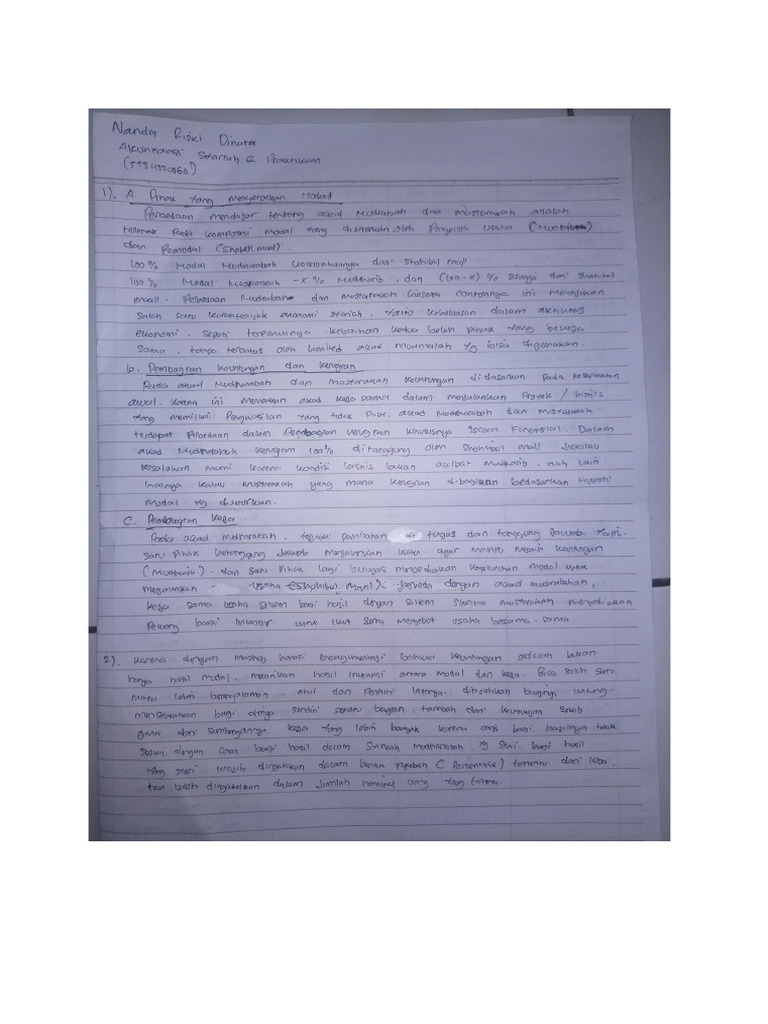 Nanda Rizki Dinata
Akuntansi Syariah & Praktikum
1). A. Pihak yang menyetorkan Modal
Perbedaan mendasar tentang akad Mudrabah dan musyarakah adalah
terletak pada komposisi modal yang disetorkan oleh Pengelola usaha (Mudharib)
dan Pemodal (Shohibul maal).
100% Modal Mudharabah keseluruhannya dari Shohibul maal
100% Modal Musyarakah - x% Mudharib, dan (100-x)% sisanya dari Shohibul
maal. Perbedaan Mudrabah dan musyarakah beserta contohnya ini menunjukan
salah satu karakteristik ekonomi syariah, yaitu kebebasan dalam aktivitas
ekonomi. seperti terpenuhnya kebutuhan kedua belah pihak yang bekerja
sama, tanpa terbatas oleh limited akad muamalah yg bisa digunakan.
b. Pembagian keuntungan dan kerugian
Pada akad Mudharabah dan musyarakah keuntungan didasarkan pada kesepakatan
awal. karena ini merupakan akad kerja sama dalam menjalankan Proyek / bisnis
yang memiliki Penghasilan yang tidak Pasti. akad Mudharabah dan musyarakah
terdapat Perbedaan dalam Pembagian kerugian khususnya secara Financial. Dalam
akad Mudharabah kerugian 100% ditanggung oleh Shohibul maal Jikalau
kesalahan murni karena kondisi bisnis bukan akibat mudharib. nah lain
halnya kalau musyarakah yang mana kerugian dibagikan berdasarkan
modal yg disetorkan.
C. Pembagian kerja
Pada akad mudharabah, terjadi pemilahan tugas dan tanggung jawab. yaitu
satu pihak bertanggung jawab menjalankan usaha agar mampu meraih keuntungan
(Mudharib). dan satu pihak lagi bertugas menyediakan kebutuhan modal untuk
usaha (Shohibul maal). berbeda dengan akad mudharabah,
kerja sama usaha sistem bagi hasil dengan sistem skema musyarakah menyediakan
Peluang bagi investor untuk ikut serta mengelola usaha bersama-sama.
2). karena dengan mazhab hanafi beragumentasi bahwa keuntungan adalah bukan
hanya hasil modal, melainkan hasil interaksi antara modal dan kerja. Bila salah satu
mitra lebih berpengalaman, ahli dan lainnya, dibolehkan baginya untung
mensyaratkan bagi dirinya sendiri sesuatu bagian tambah dari keuntungan sebab
ganti dari sumbangannya kerja yang lebih banyak karena cara bagi hasilnya tidak
sesuai dengan cara bagi hasil dalam Syirkah mudharabah yg bagi hasil
yang syar'i wajib dinyatakan dalam bentuk nisbah (Persentase) tertentu dari laba.
tak boleh dinyatakan dalam jumlah nominal uang yang tertentu.